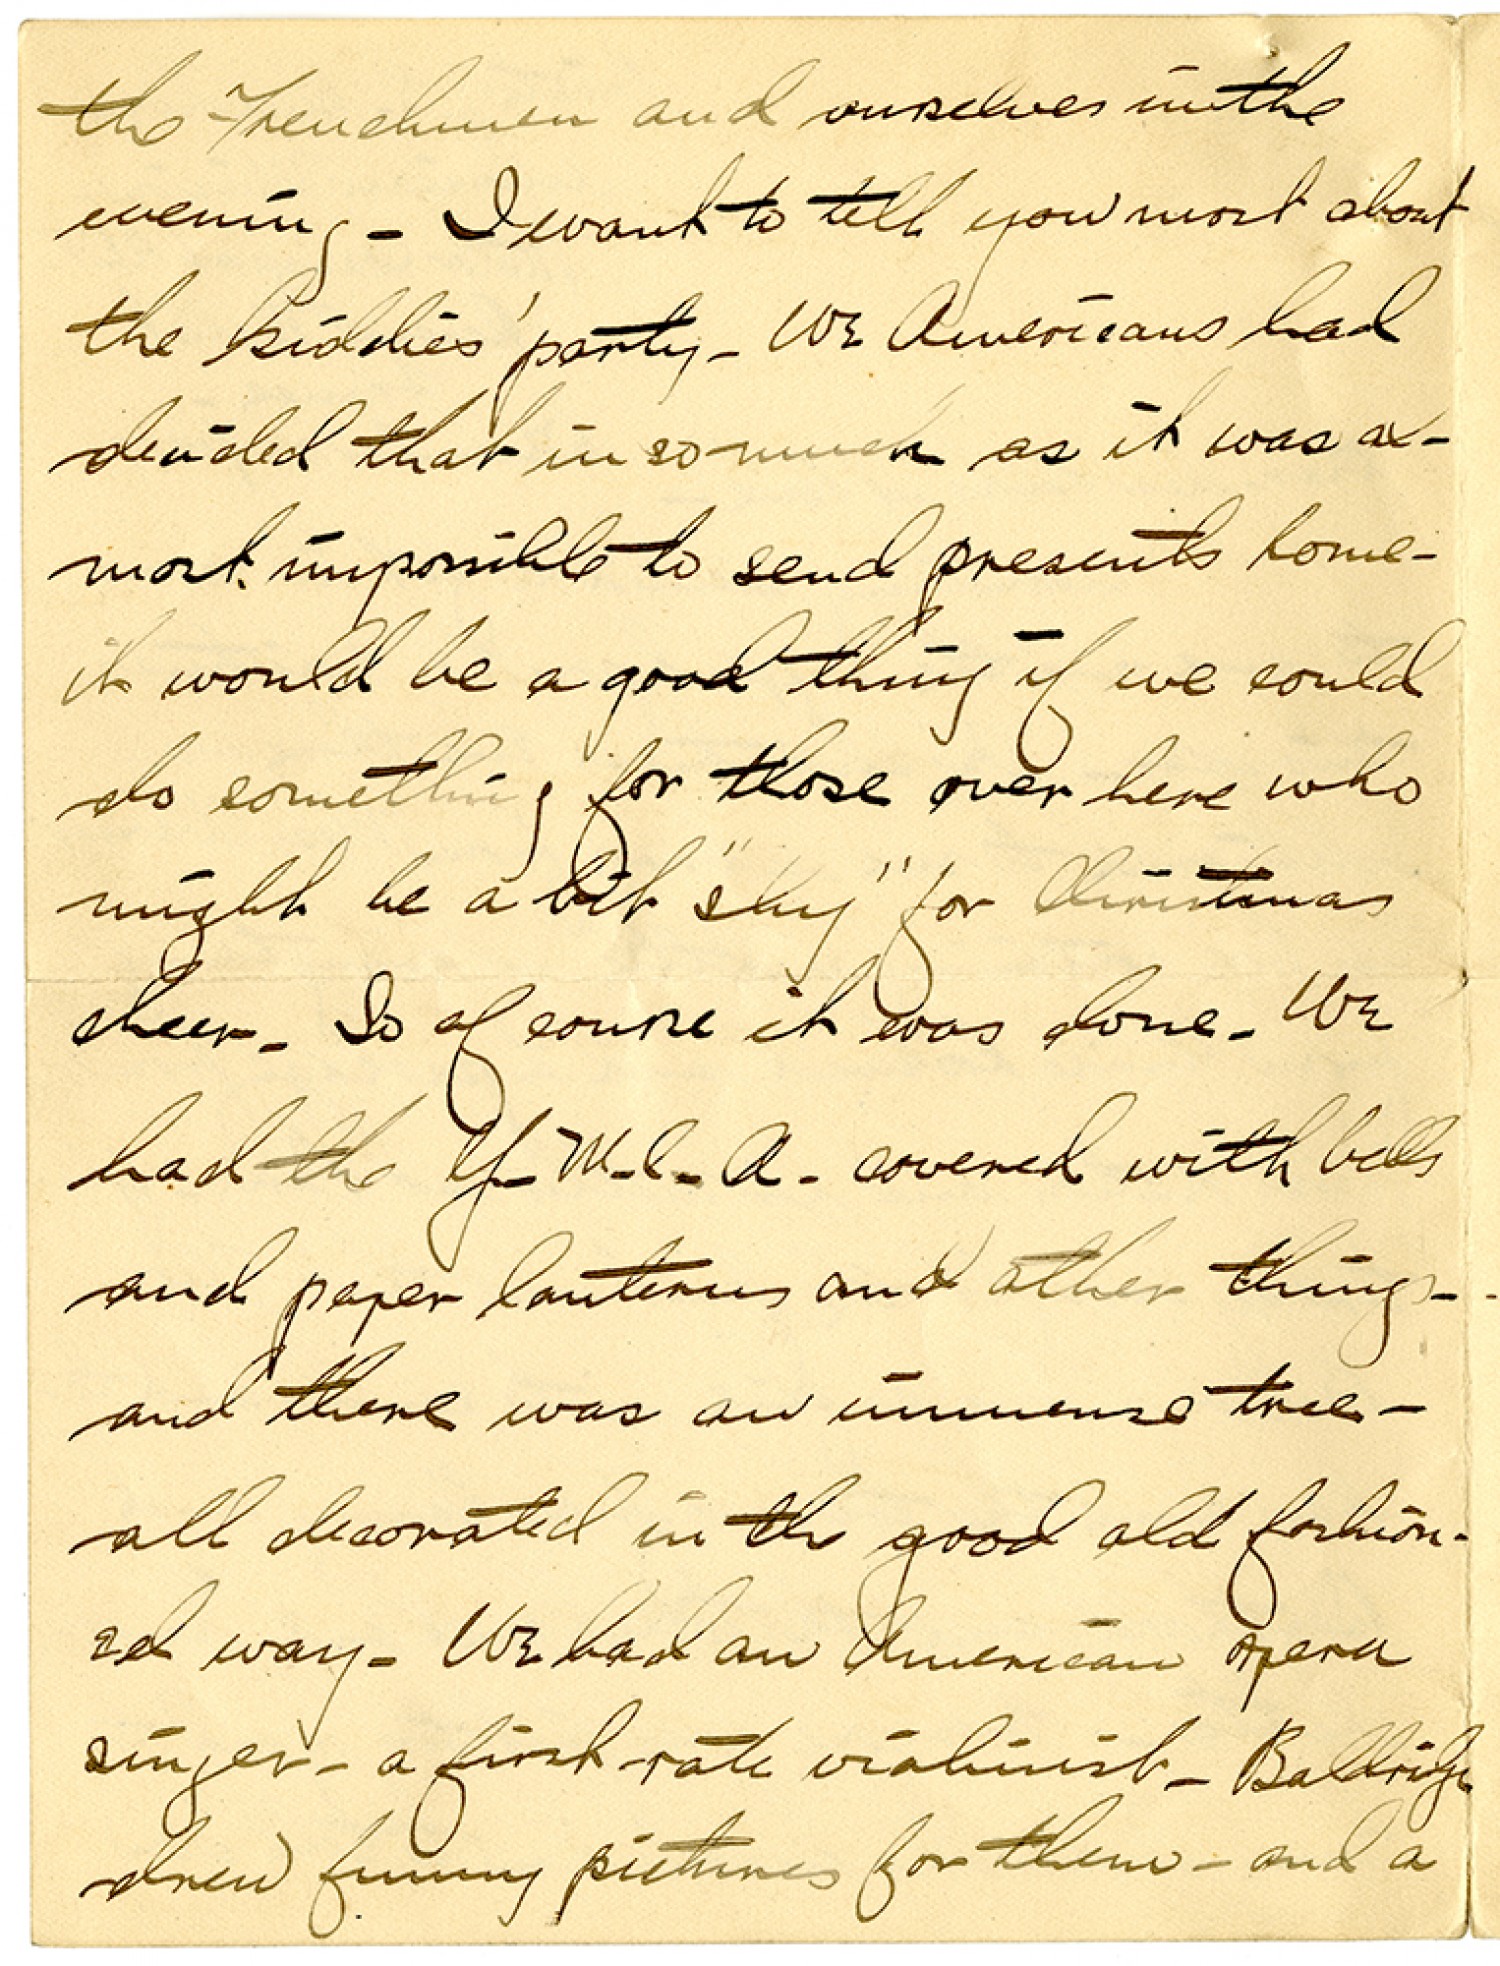 the Frenchmen and ourselves in the
evening - I want to tell you most about
the kiddies' party - We Americans had
decided that in so much as it was al-
most impossible to send presents home -
it would be a good thing if we could
do something for those over here who
might be a bit "shy" for Christmas
cheer - So of course it was done - We
had the Y-M-C-A- covered with bells
and paper lanterns and other things -
and there was an immense tree -
all decorated in the good old fashion-
ed way - We had an American opera
singer - a first-rate violinist - Baldridge
drew funny pictures for them - and a